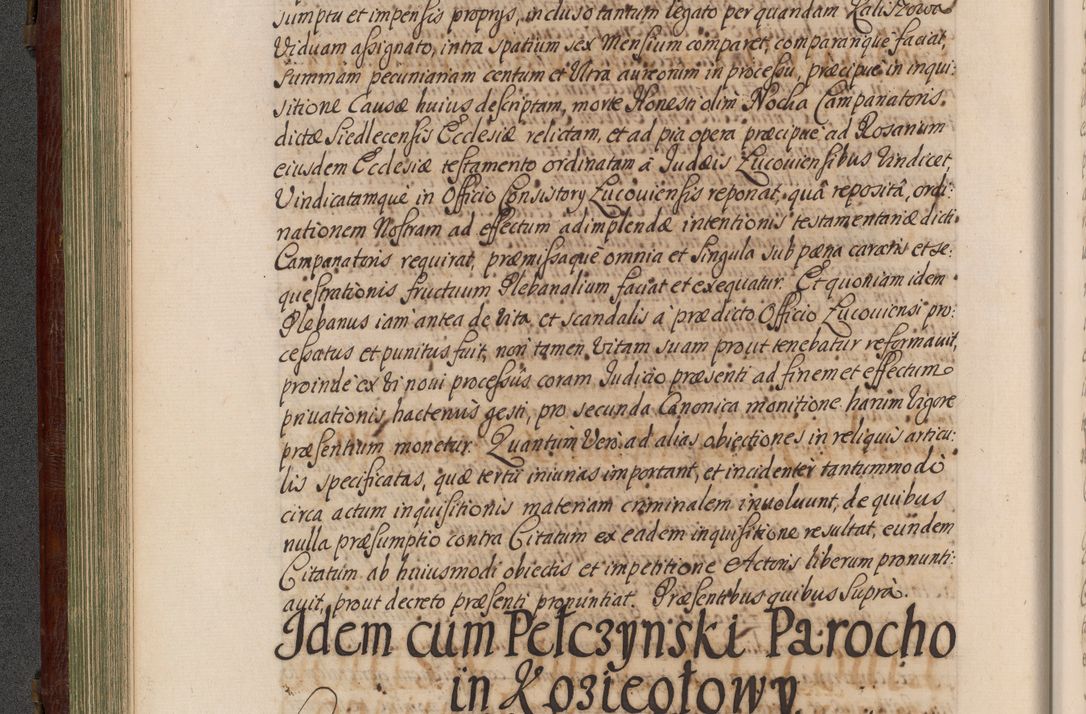 sumptu et impensis proprijs, incluso tantum legato per quandam Kaliszowa
Viduam assignato, intra spatium sex Mensium comparet, compararique faciat,
Summam pecuniariam centum et Ultra aureorum in processu, præcipue in inqui:
sitione Causæ huius descriptam, morte Honesti olim Nocha Campanatoris
dictæ Siedlecensis Ecclesiæ relictam, et ad pia opera præcipue ad Rosarium
eiusdem Ecclesiæ testamento ordinatam à Judæis Lucoviensibus Vindicet
Vindicatamque in Officio Consistorij Lucoviensis reponat, quâ repositâ, ordi:
nationem Nostram ad effectum adimplendæ intentionis testamentariæ dicti
Campanatoris requirat, præmissaque omnia et singula sub pæna carceris et se:
questrationis fructuum Plebanalium faciat et exequatur. Et quoniam idem
Plebanus iam antea de vita et scandalis à prædicto Officio Lucoviensi pro:
cessatus et punitus fuit, non tamen Vitam suam prout tenebatur reformavit,
proinde ex Vi novi processûs coram Judicio præsenti ad finem et effectum
privationis hactenus gesti, pro secunda Canonica monitione harum Vigore
præsentium monetur. Quantum Vero ad alias obiectiones in reliquis articu:
lis specificatas, quæ tertij iniurias important, et incidenter tantummodò
circa actum inquisitionis materiam criminalem involvunt, de quibus
nulla præsumptio contra Citatum ex eadem inquisitione resultat, eundem
Citatum ab huiusmodi obiectis et impetitione Actoris liberum pronunti:
avit, prout decreto præsenti pronuntiat. Præsentibus quibus Suprà.
Idem cum Pełczynski Parocho
in Kozięgłowy